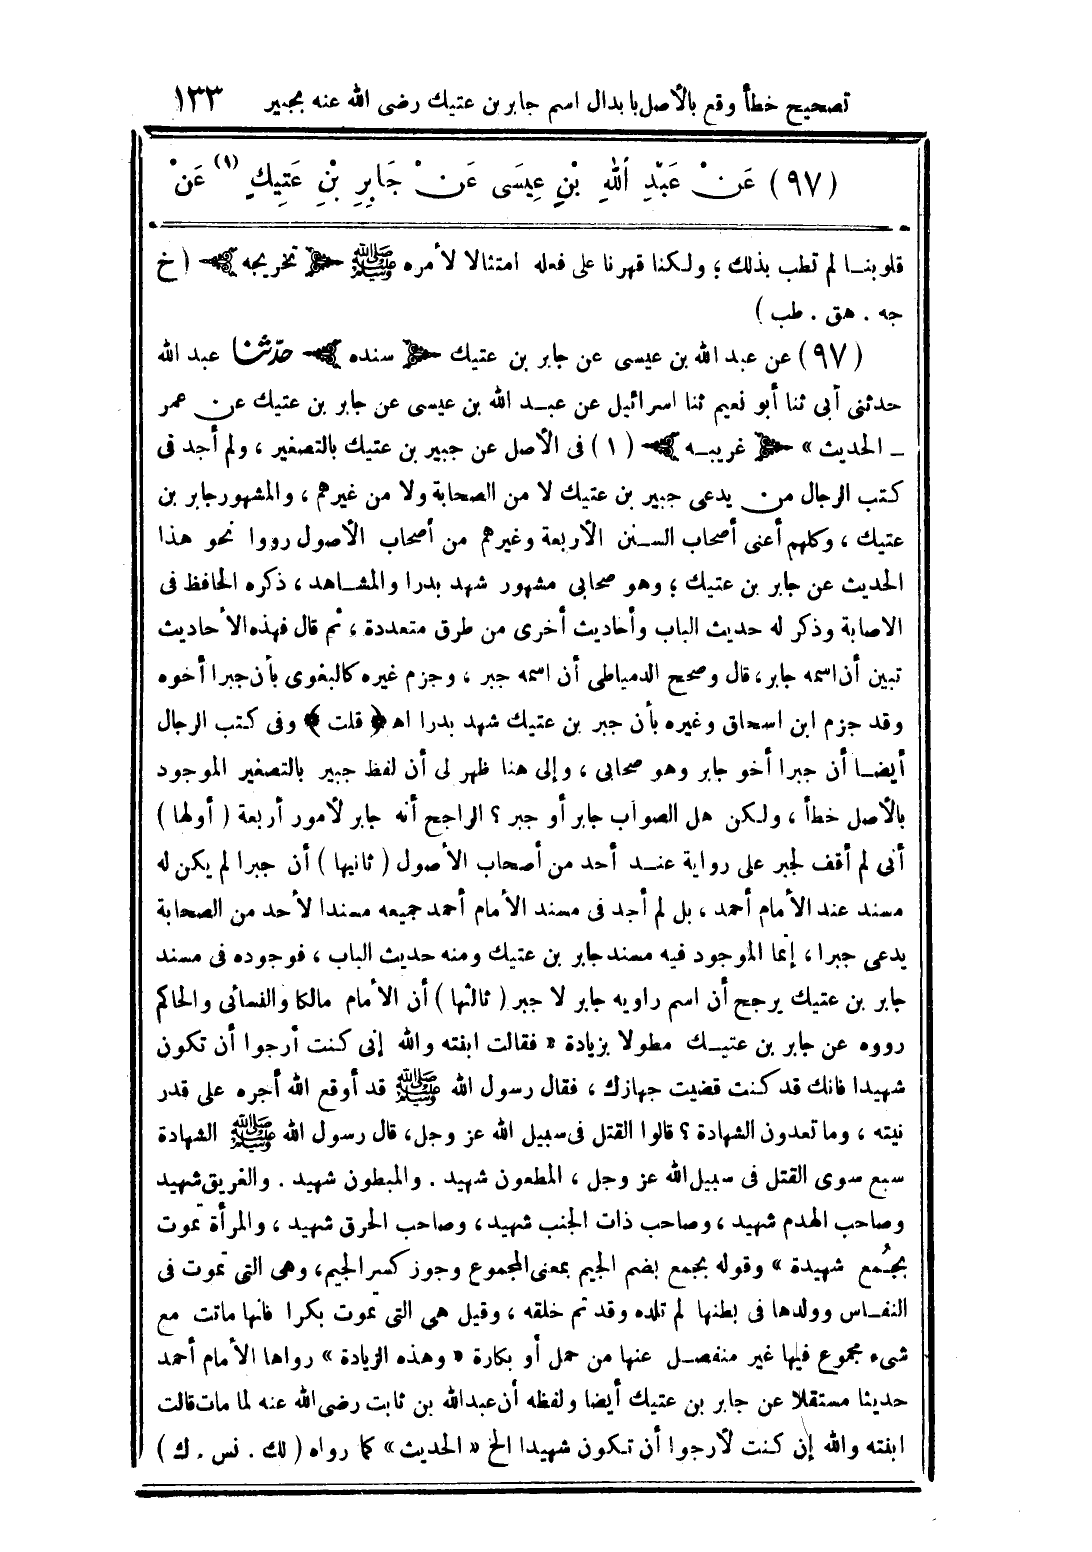 تصحيح خطأ وقع بالأصل بابدال اسم جابر بن عتيك رضى الله عنه بجبير ١٣٣
(٩٧) عَنْ عَبْدِ اللهِ بْنِ عِيسَى عَنْ جَابِرِ بْنِ عَتِيكٍ (١) عَنْ
قلوبنا لم تطب بذلك ؛ ولكنا قهرنا على فعله امتثالا لأمره ﷺ ﴿ تخريجه ﴾ (خ
جه . هق . طب )
(٩٧) عن عبد الله بن عيسى عن جابر بن عتيك ﴿ سنده ﴾ حدّثنا عبد الله
حدثنى أبى ثنا أبو نعيم ثنا اسرائيل عن عبد الله بن عيسى عن جابر بن عتيك عن عمر
ـ الحديث » ﴿ غريبه ﴾ (١) فى الأصل عن جبير بن عتيك بالتصغير ، ولم أجد فى
كتب الرجال من يدعى جبير بن عتيك لا من الصحابة ولا من غيرهم ، والمشهور جابر بن
عتيك ، وكلهم أعنى أصحاب السنن الأربعة وغيرهم من أصحاب الأصول رووا نحو هذا
الحديث عن جابر بن عتيك ؛ وهو صحابى مشهور شهد بدرا والمشاهد ، ذكره الحافظ فى
الاصابة وذكر له حديث الباب وأحاديث أخرى من طرق متعددة ، ثم قال فهذه الأحاديث
تبين أن اسمه جابر ، قال وصحح الدمياطى أن اسمه جبر ، وجزم غيره كالبغوى بأن جبرا أخوه
وقد جزم ابن اسحاق وغيره بأن جبر بن عتيك شهد بدرا اهـ ﴿ قلت ﴾ وفى كتب الرجال
أيضا أن جبرا أخو جابر وهو صحابى ، وإلى هنا ظهر لى أن لفظ جبير بالتصغير الموجود
بالأصل خطأ ، ولكن هل الصواب جابر أو جبر ؟ الراجح أنه جابر لأمور أربعة ( أولها )
أنى لم أقف لجبر على رواية عند أحد من أصحاب الأصول ( ثانيها ) أن جبرا لم يكن له
مسند عند الأمام أحمد ، بل لم أجد فى مسند الأمام أحمد جميعه مسندا لأحد من الصحابة
يدعى جبرا ، إنما الموجود فيه مسند جابر بن عتيك ومنه حديث الباب ، فوجوده فى مسند
جابر بن عتيك يرجح أن اسم راويه جابر لا جبر ( ثالثها ) أن الأمام مالكا والنسائى والحاكم
رووه عن جابر بن عتيك مطولا بزيادة « فقالت ابنته والله إنى كنت أرجوا أن تكون
شهيدا فانك قد كنت قضيت جهازك ، فقال رسول الله ﷺ قد أوقع الله أجره على قدر
نيته ، وما تعدون الشهادة ؟ قالوا القتل فى سبيل الله عز وجل ، قال رسول الله ﷺ الشهادة
سبع سوى القتل فى سبيل الله عز وجل ، المطعون شهيد . والمبطون شهيد . والغريق شهيد
وصاحب الهدم شهيد ، وصاحب ذات الجنب شهيد ، وصاحب الحرق شهيد ، والمرأة تموت
بجُمع شهيدة » وقوله بجمع بضم الجيم بمعنى المجموع وجوز كسر الجيم ، وهى التى تموت فى
النفاس وولدها فى بطنها لم تلده وقد تم خلقه ، وقيل هي التى تموت بكرا فانها ماتت مع
شىء مجموع فيها غير منفصل عنها من حمل أو بكارة « وهذه الزيادة » رواها الأمام أحمد
حديثا مستقلا عن جابر بن عتيك أيضا ولفظه أن عبدالله بن ثابت رضى الله عنه لما مات قالت
ابنته والله إن كنت لأرجوا أن تكون شهيدا الخ « الحديث » كما رواه ( لك . نس . ك )